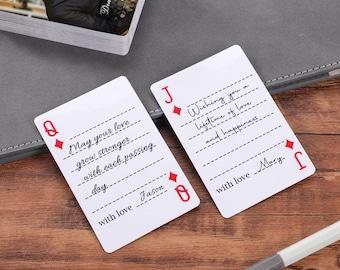 Q
May your love
grow stronger
with each passing
day
with love Jason
Q
J
Wishing you a
lifetime of love
and happiness
with love Mary
J